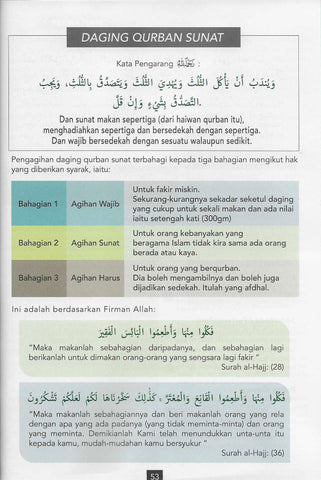 DAGING QURBAN SUNAT
Kata Pengarang رحمه الله :
وَيُنْدَبُ أَنْ يَأْكُلَ الثُّلُثَ وَيُهْدِيَ الثُّلُثَ وَيَتَصَدَّقَ بِالثُّلُثِ، وَيَجِبُ
التَّصَدُّقُ بِشَيْءٍ وَإِنْ قَلَّ.
Dan sunat makan sepertiga (dari haiwan qurban itu),
menghadiahkan sepertiga dan bersedekah dengan sepertiga.
Dan wajib bersedekah dengan sesuatu walaupun sedikit.
Pengagihan daging qurban sunat terbahagi kepada tiga bahagian mengikut hak
yang diberikan syarak, iaitu:
Bahagian 1 Agihan Wajib
Untuk fakir miskin.
Sekurang-kurangnya sekadar seketul daging
yang cukup untuk sekali makan dan ada nilai
iaitu setengah kati (300gm)
Bahagian 2 Agihan Sunat
Untuk orang kebanyakan yang
beragama Islam tidak kira sama ada orang
berada atau kaya.
Bahagian 3 Agihan Harus
Untuk orang yang berqurban.
Dia boleh mengambilnya dan boleh juga
dijadikan sedekah. Itulah yang afdhal.
Ini adalah berdasarkan Firman Allah:
فَكُلُوا مِنْهَا وَأَطْعِمُوا الْبَائِسَ الْفَقِيرَ
"Maka makanlah sebahagian daripadanya, dan sebahagian lagi
berikanlah untuk dimakan orang-orang yang sengsara lagi fakir "
Surah al-Hajj: (28)
فَكُلُوا مِنْهَا وَأَطْعِمُوا الْقَانِعَ وَالْمُعْتَرَّ ۚ كَذَٰلِكَ سَخَّرْنَاهَا لَكُمْ لَعَلَّكُمْ تَشْكُرُونَ
"Maka makanlah sebahagiannya dan beri makanlah orang yang rela
dengan apa yang ada padanya (yang tidak meminta-minta) dan orang
yang meminta. Demikianlah Kami telah menundukkan unta-unta itu
kepada kamu, mudah-mudahan kamu bersyukur "
Surah al-Hajj: (36)
53